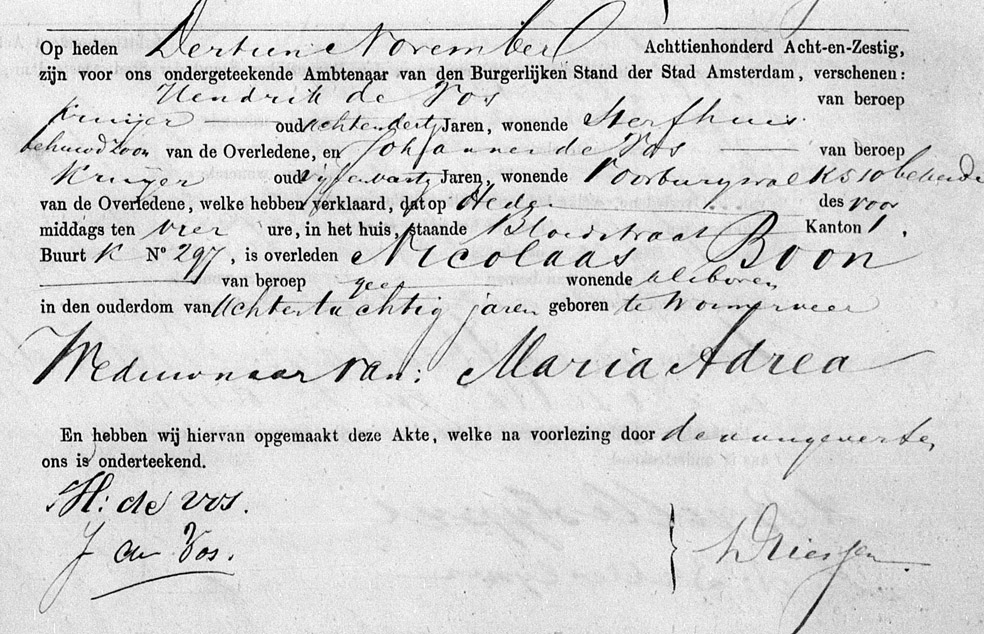 Op heden Dertien November Achttienhonderd Acht-en-Zestig,
zijn voor ons ondergeteekende Ambtenaar van den Burgerlijken Stand der Stad Amsterdam, verschenen:
Hendrik de Vos van beroep
Kruijer oud achtendertig Jaren, wonende Sterfhuis.
behuwdzoon van de Overledene, en Johannes de Vos van beroep
Kruijer oud vijfenveertig Jaren, wonende Voorburgwal K 510 bekende
van de Overledene, welke hebben verklaard, dat op Hede des voor
middags ten vier ure, in het huis, staande Bloedstraat Kanton 1.
Buurt K No 297, is overleden Nicolaas Boon
van beroep geen wonende aldaar
in den ouderdom van Achtentachtig jaren geboren te Wormerveer
Weduwnaar van: Maria Adrea
En hebben wij hiervan opgemaakt deze Akte, welke na voorlezing door de aangevers en
ons is onderteekend.
H: de Vos.
J de Vos.